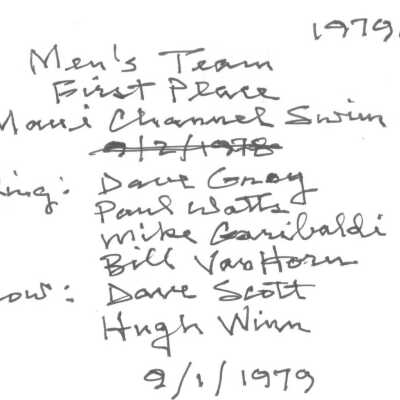 1979
Men's Team
First Place
Maui Channel Swim
9/2/1978
ing: Dave Gray
Paul Watts
Mike Garibaldi
Bill VanHorn
ow: Dave Scott
Hugh Winn
9/1/1979